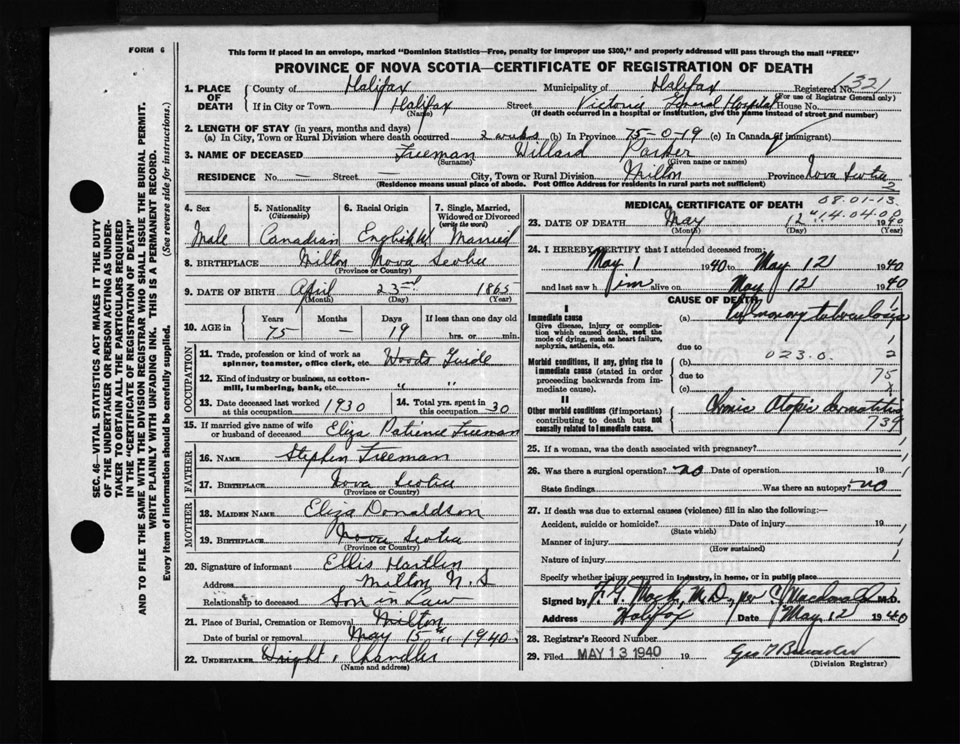 FORM 6
This form if placed in an envelope, marked "Dominion Statistics—Free, penalty for improper use $300," and properly addressed will pass through the mail "FREE"
PROVINCE OF NOVA SCOTIA—CERTIFICATE OF REGISTRATION OF DEATH
SEC. 46—VITAL STATISTICS ACT MAKES IT THE DUTY
OF THE UNDERTAKER OR PERSON ACTING AS UNDER-
TAKER TO OBTAIN ALL THE PARTICULARS REQUIRED
IN THE "CERTIFICATE OF REGISTRATION OF DEATH"
AND TO FILE THE SAME WITH THE DIVISION REGISTRAR WHO SHALL ISSUE THE BURIAL PERMIT.
WRITE PLAINLY WITH UNFADING INK. THIS IS A PERMANENT RECORD.
Every item of information should be carefully supplied. (See reverse side for instructions.)
1. PLACE OF DEATH
County of Halifax Municipality of Halifax Registered No. 1321
(For use of Registrar General only)
If in City or Town Halifax Street Victoria General Hospital House No.
(Name) (If death occurred in a hospital or institution, give the name instead of street and number)
2. LENGTH OF STAY (in years, months and days)
(a) In City, Town or Rural Division where death occurred 2 weeks (b) In Province 75-0-19 (c) In Canada (if immigrant)
3. NAME OF DECEASED Freeman Willard Parker
(Surname) (Given name or names)
RESIDENCE No. — Street — City, Town or Rural Division Milton Province Nova Scotia
(Residence means usual place of abode. Post Office Address for residents in rural parts not sufficient) 2
4. Sex Male
5. Nationality (Citizenship) Canadian
6. Racial Origin English W
7. Single, Married, Widowed or Divorced (write the word) Married
8. BIRTHPLACE Milton Nova Scotia
(Province or Country)
9. DATE OF BIRTH April 23rd 1865
(Month) (Day) (Year)
10. AGE in Years 75 Months — Days 19 If less than one day old hrs. or min.
OCCUPATION
11. Trade, profession or kind of work as spinner, teamster, office clerk, etc. Woods Guide
12. Kind of industry or business, as cotton-mill, lumbering, bank, etc. " "
13. Date deceased last worked at this occupation 1930
14. Total yrs. spent in this occupation 30
15. If married give name of wife or husband of deceased Eliza Patience Freeman
FATHER
16. NAME Stephen Freeman
17. BIRTHPLACE Nova Scotia
(Province or Country)
MOTHER
18. MAIDEN NAME Eliza Donaldson
19. BIRTHPLACE Nova Scotia
(Province or Country)
20. Signature of informant Ellis Hartlin
Address Milton N.S
Relationship to deceased Son in Law
21. Place of Burial, Cremation or Removal Milton
Date of burial or removal May 15th 1940
22. UNDERTAKER Chandler
(Name and address)
MEDICAL CERTIFICATE OF DEATH
08.01-13.
14.04.08
23. DATE OF DEATH May 12th 1940
(Month) (Day) (Year)
24. I HEREBY CERTIFY that I attended deceased from:
May 1 1940 to May 12 1940
and last saw him alive on May 12 1940
CAUSE OF DEATH
I
Immediate cause
Give disease, injury or complication which caused death, not the mode of dying, such as heart failure, asphyxia, asthenia, etc.
(a) Pulmonary tuberculosis
due to
Morbid conditions, if any, giving rise to immediate cause (stated in order proceeding backwards from immediate cause).
(b) 023.0. 2
due to 75
(c) X
II
Other morbid conditions (if important) contributing to death but not causally related to immediate cause.
Chronic Atopic Dermatitis
739
25. If a woman, was the death associated with pregnancy?
26. Was there a surgical operation? no Date of operation 19
State findings Was there an autopsy? no
27. If death was due to external causes (violence) fill in also the following:—
Accident, suicide or homicide? Date of injury 19
(State which)
Manner of injury
(How sustained)
Nature of injury
Specify whether injury occurred in industry, in home, or in public place
Signed by F. G. Mack, M.D., per M.D.
Address Halifax Date May 12 1940
28. Registrar's Record Number
29. Filed MAY 13 1940 19
(Division Registrar)